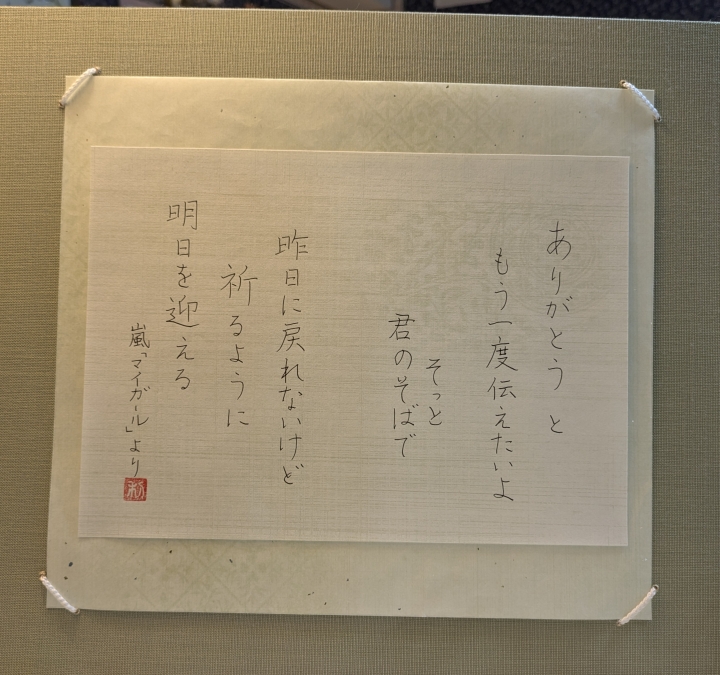 ありがとう と
もう一度伝えたいよ
そっと
君のそばで
昨日に戻れないけど
祈るように
明日を迎える
嵐「マイガール」より